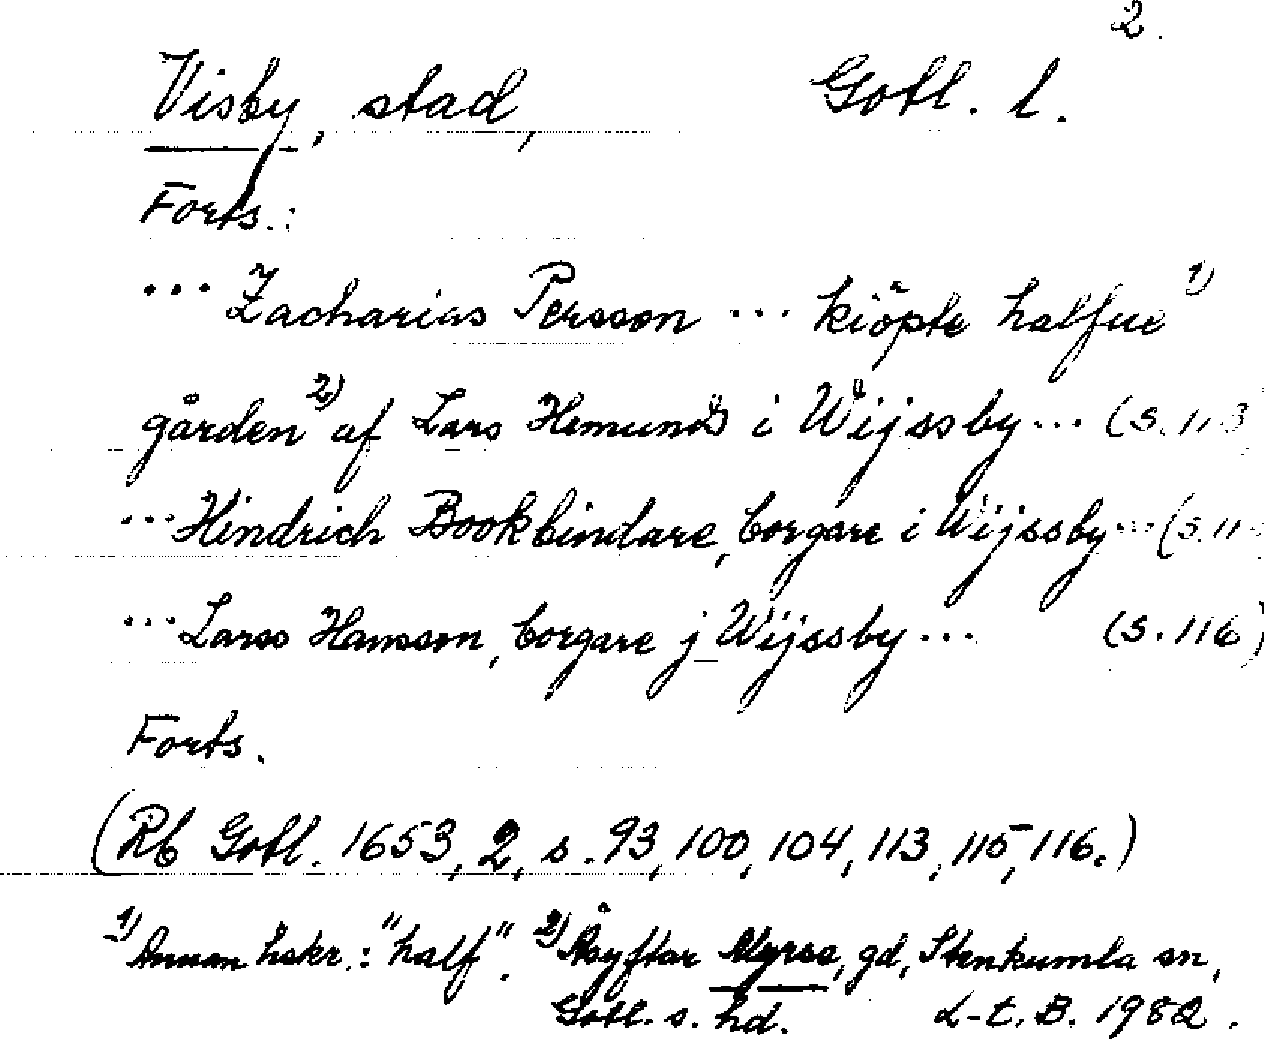 2.
Visby, stad, Gotl. l.
Forts.:
... Zacharias Persson ... kiöpte halfue 1)
gården 2) af Lars Hemunds i Wijssby ... (s. 113
... Hindrich Bookbindare, borgare i Wijssby ... (s. 11
... Larss Hansson, borgare j Wijssby ... (s. 116)
Forts.
(Rb Gotl. 1653, 2, s. 93, 100, 104, 113, 115, 116.)
1) Annan hskr.: "half". 2) Åsyftar Myrse, gd, Stenkumla sn,
Gotl. s. hd. L-t. B. 1982.